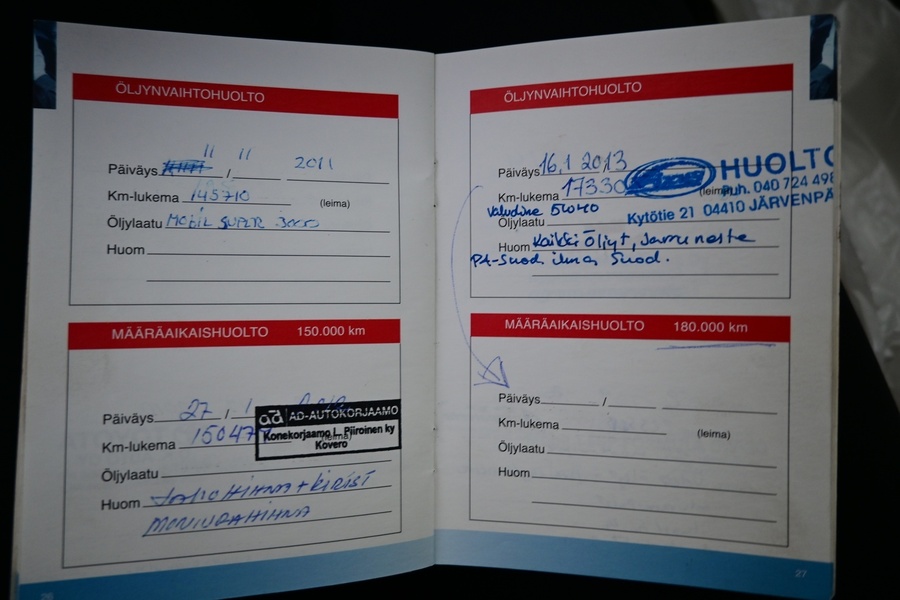 ÖLJYNVAIHTOHUOLTO
Päiväys 11 / 11 2011
Km-lukema 145710 (leima)
Öljylaatu MOBIL SUPER 3000
Huom
MÄÄRÄAIKAISHUOLTO 150.000 km
Päiväys 27 / 1
Km-lukema 15047 (leima)
AD-AUTOKORJAAMO
Konekorjaamo L. Piiroinen ky
Kovero
Öljylaatu
Huom JAKOHIHNA + KIRIST
MONIURAHIHNA
26
ÖLJYNVAIHTOHUOLTO
Päiväys 16.1 2013
Km-lukema 17330 (leima)
HUOLTO
Puh. 040 724 498
Kytötie 21 04410 JÄRVENPÄ
Valvoline 5W40
Öljylaatu
Huom Kaikki Öljyt, Jarruneste
PA-Suod. ilma Suod.
MÄÄRÄAIKAISHUOLTO 180.000 km
Päiväys /
Km-lukema (leima)
Öljylaatu
Huom
27